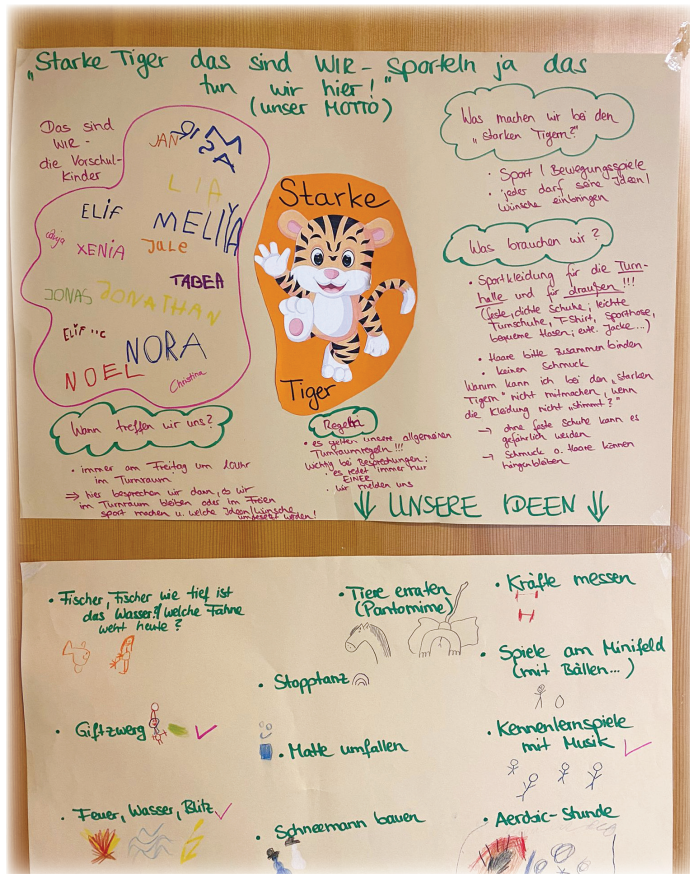 „Starke Tiger das sind WIR – sporteln ja das
tun wir hier!"
(unser MOTTO)
Das sind
WIR –
die Vorschul-
kinder
JAN
LISA
LIA
ELIF
MELIYA
XENIA
JALE
TABEA
JONAS
JONATHAN
ELIF
NORA
NOEL
Christina
Starke
Tiger
Was machen wir bei den
„starken Tigern?"
• Sport / Bewegungsspiele
• jeder darf seine Ideen /
Wünsche einbringen
Was brauchen wir?
• Sportkleidung für die Turn-
halle und für draußen!!!
(feste, dichte Schuhe, leichte
Turnschuhe, T-Shirt, Sporthose,
bequeme Hosen; evt. Jacke...)
• Haare bitte zusammen binden
• keinen Schmuck
Warum kann ich bei den „starken
Tigern" nicht mitmachen, wenn
die Kleidung nicht „stimmt?"
→ ohne feste Schuhe kann es
gefährlich werden
→ Schmuck o. Haare können
hängenbleiben
Wann treffen wir uns?
• immer am Freitag um 10Uhr
im Turnraum
⇒ hier besprechen wir dann, ob wir
im Turnraum bleiben oder im Freien
sport machen u. welche Ideen/Wünsche
umgesetzt werden!
Regeln
• es gelten unsere allgemeinen
Turnraumregeln!!!
wichtig bei Besprechungen:
• es redet immer nur
EINER
• wir melden uns
⇓ UNSERE IDEEN ⇓
• Fischer, Fischer wie tief ist
das Wasser? / welche Fahne
weht heute?
• Giftzwerg
• Feuer, Wasser, Blitz
• Tiere erraten
(Pantomime)
• Stopptanz
• Matte umfallen
• Schneemann bauen
• Kräfte messen
• Spiele am Minifeld
(mit Bällen...)
• Kennenlernspiele
mit Musik
• Aerobic-Stunde